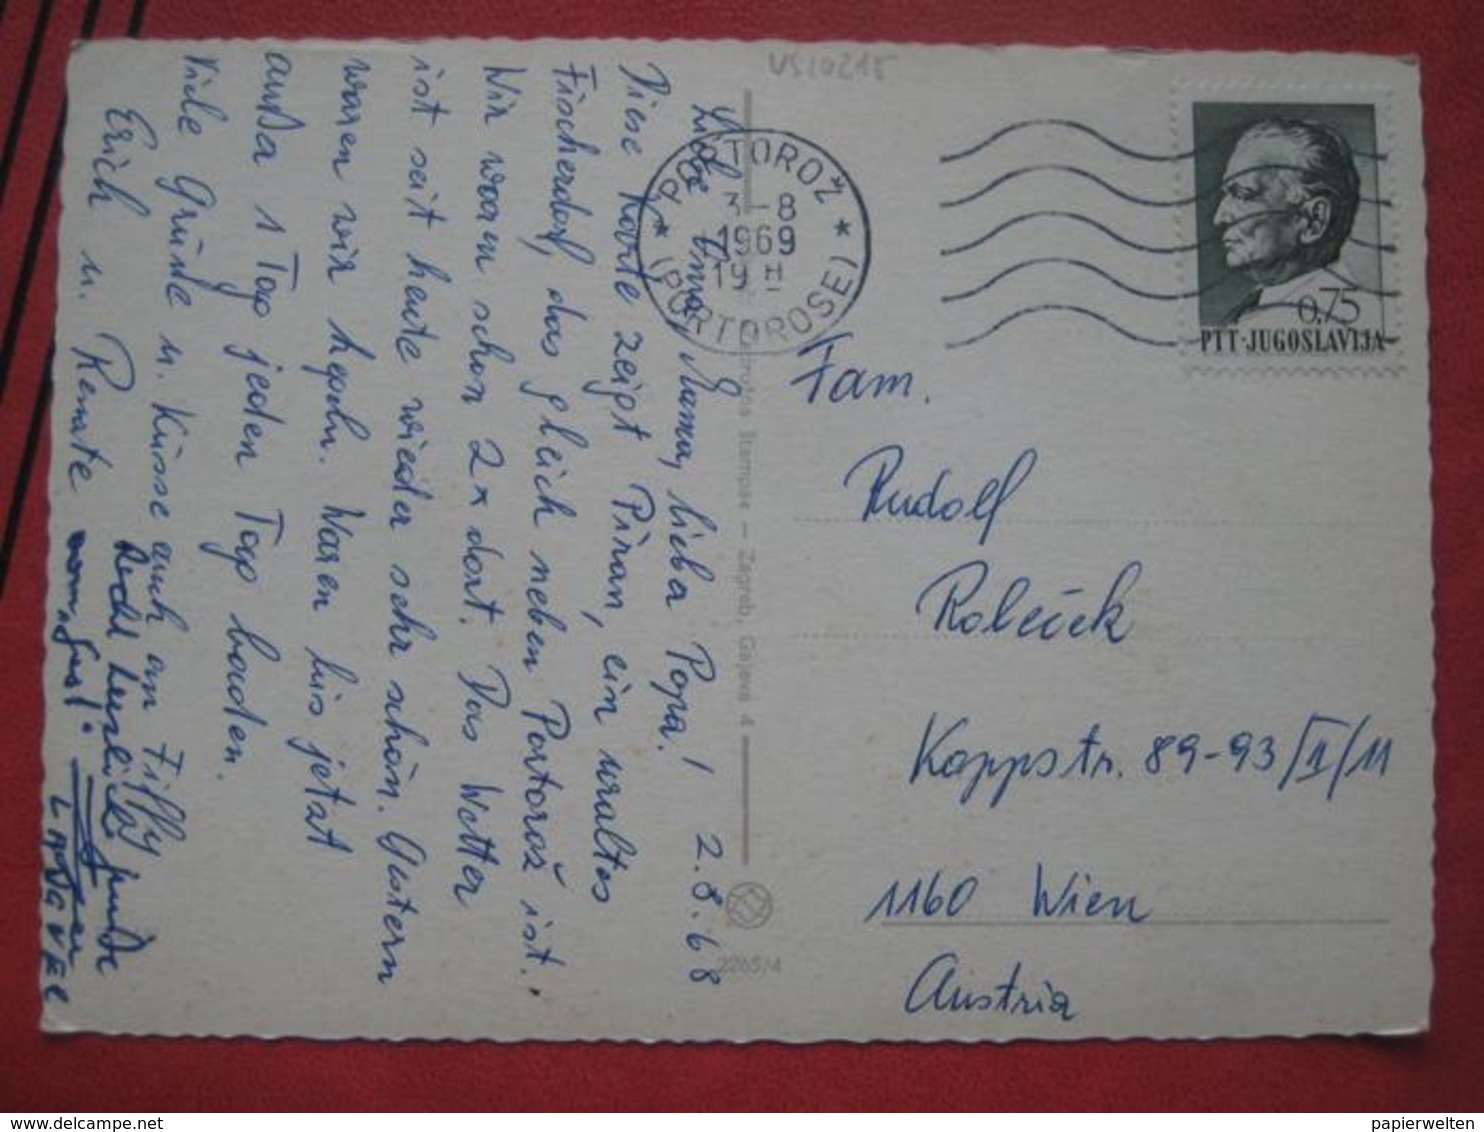 US10215
PORTOROŽ
3-8
1969
19 H
(PORTOROSE)
0,75
PTT-JUGOSLAVIJA
Liebe Oma, Mama, lieber Papa! 2.8.68
Diese Karte zeigt Piran, ein uraltes
Fischerdorf, das gleich neben Portorož ist.
Wir waren schon 2x dort. Das Wetter
ist seit heute wieder sehr schön. Gestern
waren wir kegeln. Waren bis jetzt
außa 1 Tag jeden Tag baden.
Viele Grüße u. Küsse auch an Filly
Erich u. Renate
Recht herzliche Grüße
štampae – Zagreb, Gajeva 4
2265/4
Fam.
Rudolf
Roleček
Koppstr. 89-93/II/11
1160 Wien
Austria
papierwelten